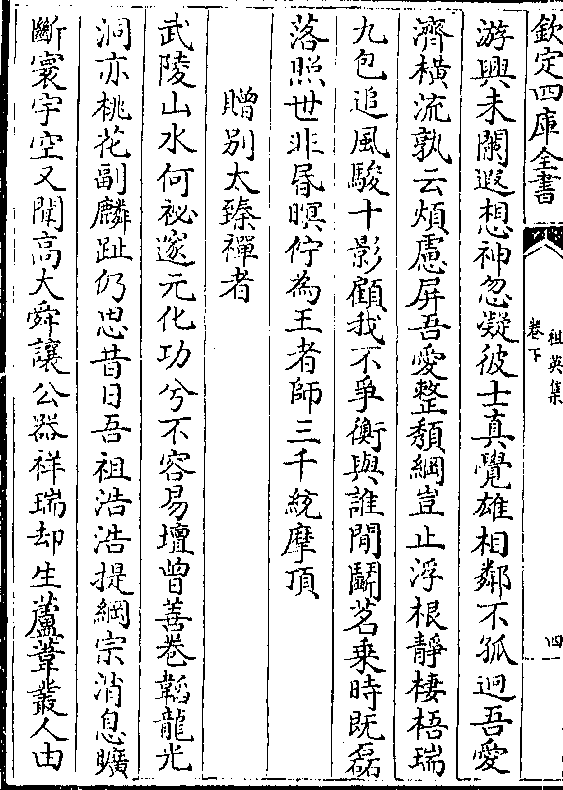 欽定四庫全書
祖英集
卷下
四
游興未闌遐想神忽凝彼士真覺雄相鄰不孤迥吾愛
濟橫流孰云煩慮屏吾愛整頹綱豈止浮根靜棲梧瑞
九包追風駿十影顧我不爭衡與誰閒鬬茗乗時既磊
落照世非昬暝佇為王者師三千統摩頂
贈别太臻禪者
武陵山水何祕邃元化功兮不容易壇曾善卷韜龍光
洞亦桃花副麟趾仍思昔日吾祖浩浩提綱宗消息曠
斷寰宇空又聞高大舜讓公器祥瑞却生蘆葦叢人由